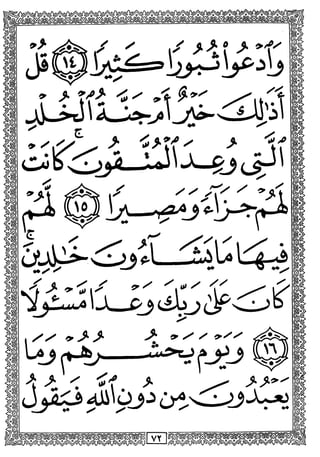 وَٱدْعُوا۟ ثُبُورًا كَثِيرًا ١٤ قُلْ
أَذَٰلِكَ خَيْرٌ أَمْ جَنَّةُ ٱلْخُلْدِ
ٱلَّتِى وُعِدَ ٱلْمُتَّقُونَ ۚ كَانَتْ
لَهُمْ جَزَآءً وَمَصِيرًا ١٥ لَّهُمْ
فِيهَا مَا يَشَآءُونَ خَٰلِدِينَ ۚ
كَانَ عَلَىٰ رَبِّكَ وَعْدًا مَّسْـُٔولًا
١٦ وَيَوْمَ يَحْشُرُهُمْ وَمَا
يَعْبُدُونَ مِن دُونِ ٱللَّهِ فَيَقُولُ
٧٢